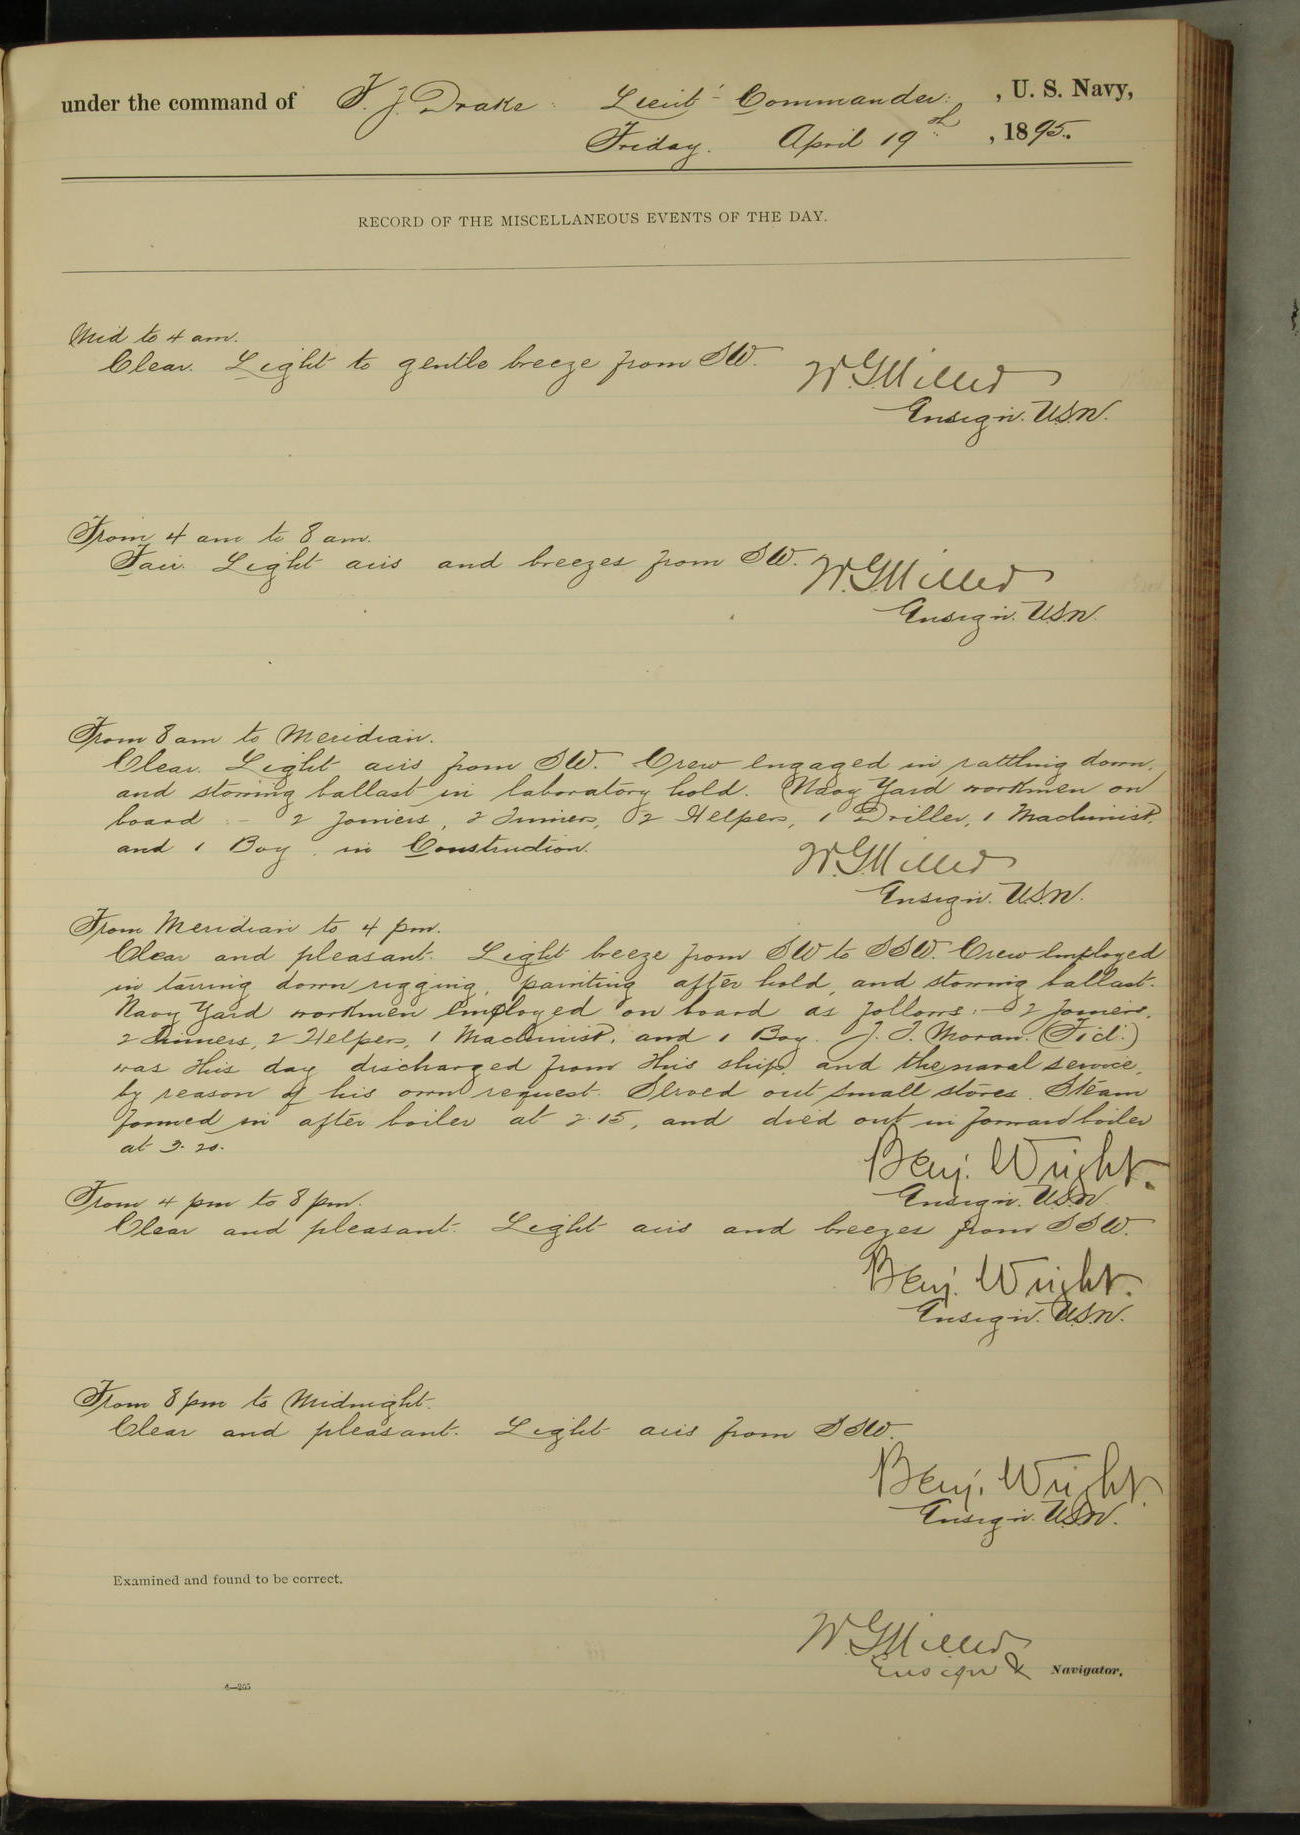 under the command of F. J. Drake Lieut. Commander , U. S. Navy,
Friday. April 19th , 1895.
RECORD OF THE MISCELLANEOUS EVENTS OF THE DAY.
Mid to 4 am.
Clear. Light to gentle breeze from SW.
W. G. Miller
Ensign. U.S.N.
From 4 am to 8 am.
Fair. Light airs and breezes from SW.
W. G. Miller
Ensign. U.S.N.
From 8 am to Meridian.
Clear. Light airs from SW. Crew engaged in rattling down,
and stowing ballast in laboratory hold. Navy Yard workmen on
board :- 2 Joiners, 2 Tinners, 2 Helpers, 1 Driller, 1 Machinist,
and 1 Boy in Construction.
W. G. Miller
Ensign. U.S.N.
From Meridian to 4 pm.
Clear and pleasant. Light breeze from SW to SSW. Crew employed
in tarring down rigging, painting after hold, and stowing ballast.
Navy Yard workmen employed on board as follows:- 2 Joiners,
2 Tinners, 2 Helpers, 1 Machinist, and 1 Boy. J. T. Moran (F.1cl.)
was this day discharged from this ship, and the naval service,
by reason of his own request. Served out small stores. Steam
formed in after boiler at 2.15, and died out in forward boiler
at 3.20.
Benj. Wright.
Ensign. U.S.N.
From 4 pm to 8 pm.
Clear and pleasant. Light airs and breezes from SSW.
Benj. Wright.
Ensign. U.S.N.
From 8 pm to Midnight.
Clear and pleasant. Light airs from SSW.
Benj. Wright.
Ensign. U.S.N.
Examined and found to be correct.
W. G. Miller
Ensign & Navigator.